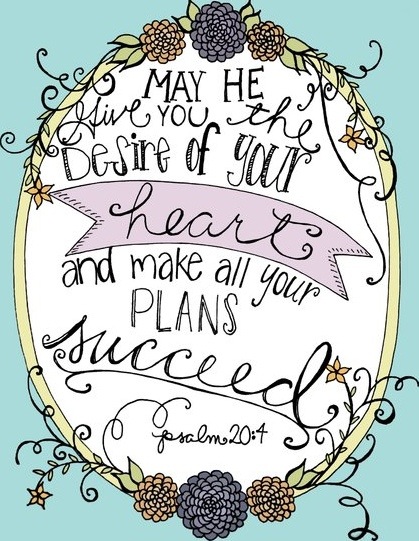 MAY HE
Give YOU the
Desire of your
heart
and make all your
PLANS
succeed
psalm 20:4